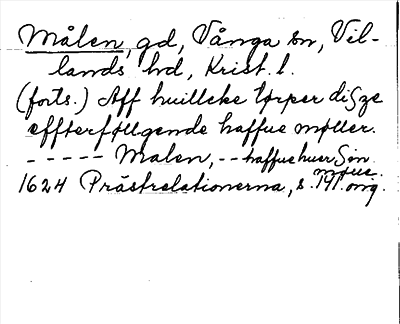 Målen, gd, Vånga sn, Vil-
lands hd, Krist. l.
(forts.) Aff huillcke torper disze
effterføllgende haffue møller.
- - - - - Malen, - - haffue huer Sin
mølle.
1624 Prästrelationerna, s. 141. orig.